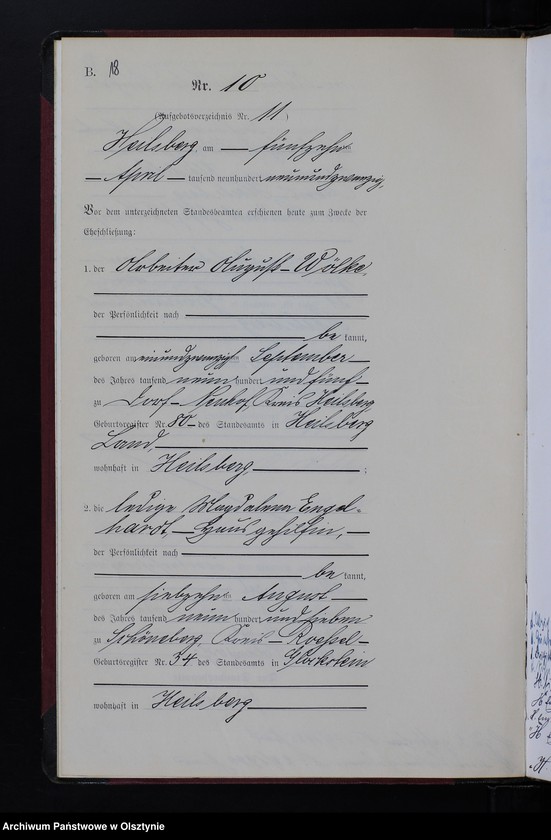 B. 18
Nr. 10
(Aufgebotsverzeichnis Nr. 11)
Heilsberg, am — fünfzehnten
— April — tausend neunhundert neunundzwanzig.
Vor dem unterzeichneten Standesbeamten erschienen heute zum Zwecke der
Eheschließung:
1. der Arbeiter August – Wölke,
der Persönlichkeit nach
be kannt,
geboren am einundzwanzigsten September
des Jahres tausend neun hundert und fünf –
zu Dorf – Neuhof, Kreis Heilsberg
Geburtsregister Nr. 80 – des Standesamts in Heilsberg
Land,
wohnhaft in Heilsberg, ;
2. die ledige Magdalena Engel-
hardt, — Hausgehilfin, —
der Persönlichkeit nach
be kannt,
geboren am siebzehnten August
des Jahres tausend neun hundert und sieben
zu Schöneberg Kreis – Roessel –
Geburtsregister Nr. 34 des Standesamts in Glockstein
wohnhaft in Heilsberg
Archiwum Państwowe w Olsztynie